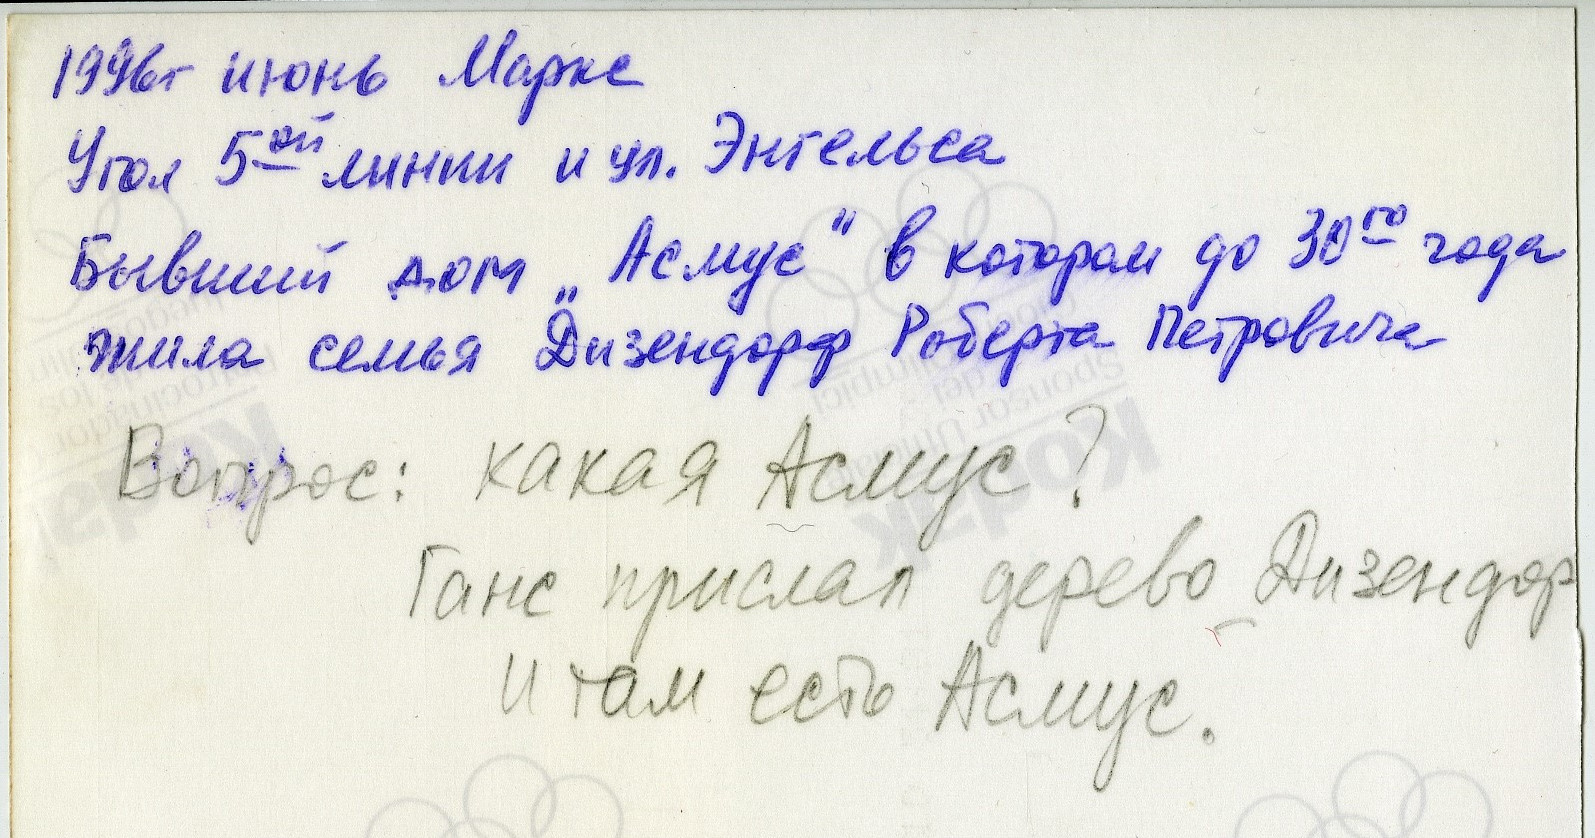 1996г июнь Маркс
Угол 5ой линии и ул. Энгельса
Бывший дом „Асмус" в котором до 30го года
жила семья Дизендорф Роберта Петровича
Вопрос: какая Асмус?
Ганс прислал дерево Дизендорф
и там есть Асмус.
Kodak
Kodak